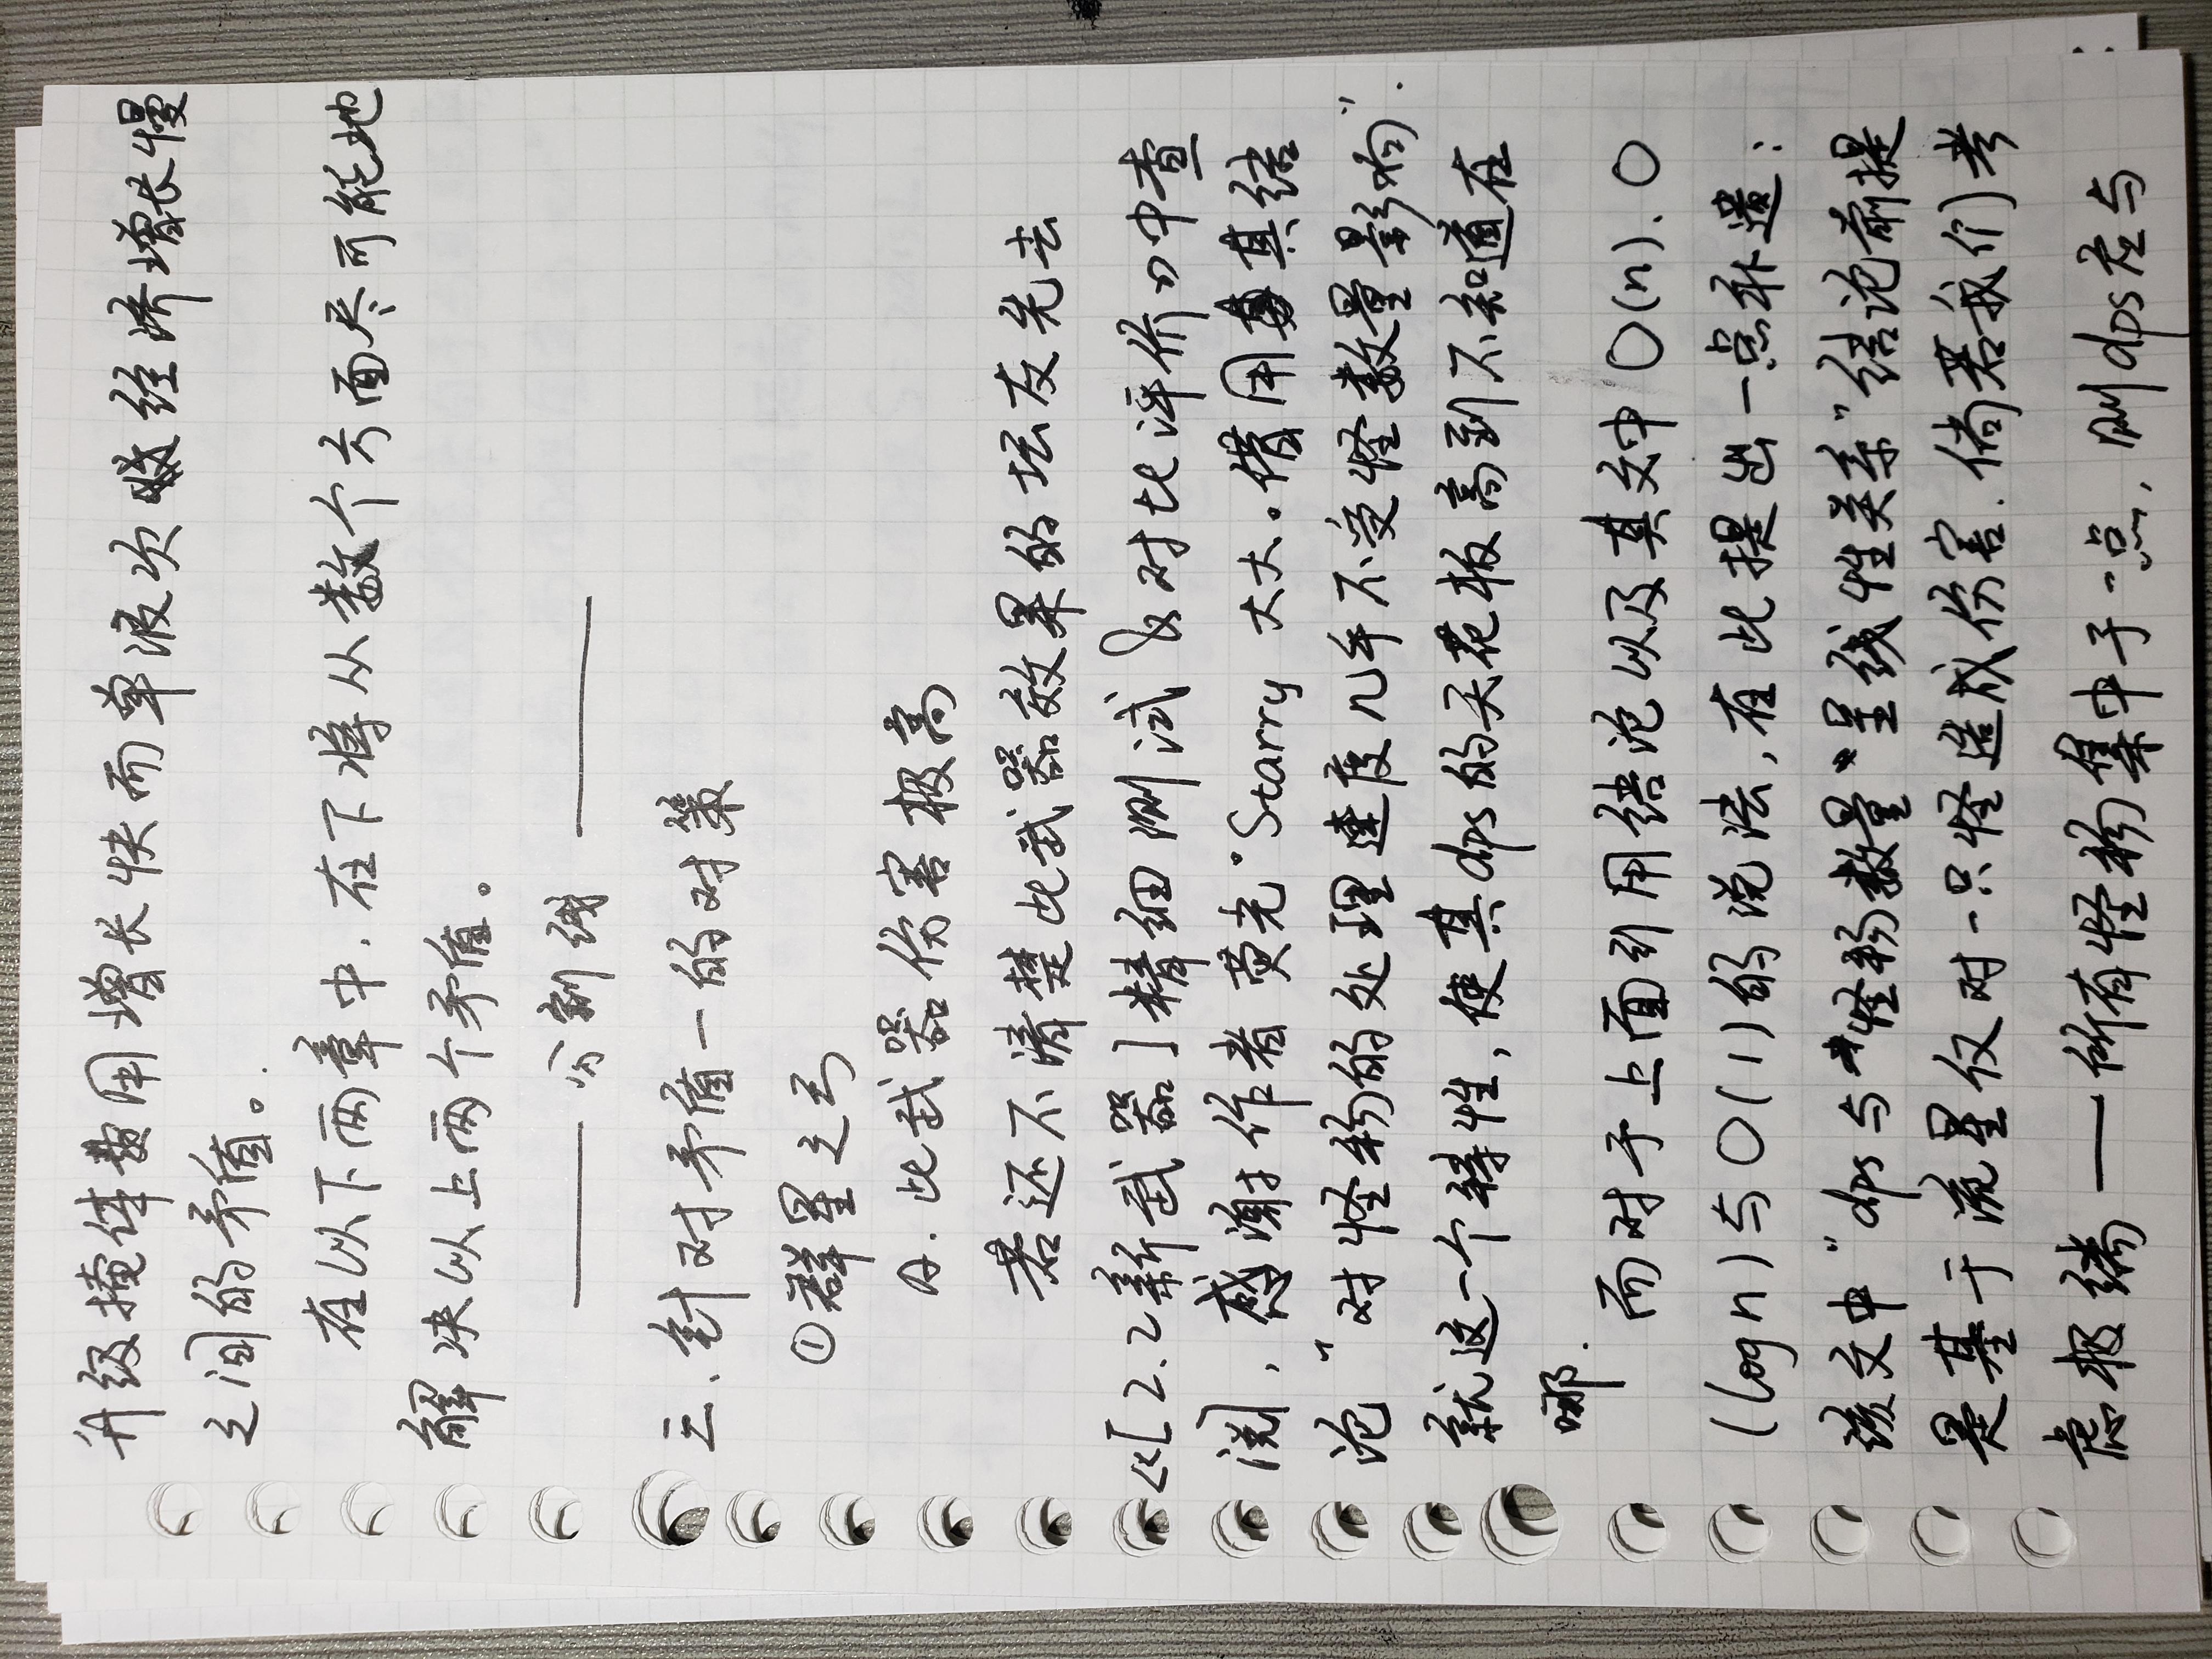 升级掩体费用增长快而单波次收经济增长慢
之间的矛盾。
在以下两章中.在下将从数个方面尽可能地
解决以上两个矛盾。
——— 分割线 ———
三.针对矛盾一的对策
①群星之弓
a.此武器伤害极高
若还不清楚此武器效果的坛友先去
《[2.2新武器]精细测试&对比评价》中查
阅,感谢作者荧光·Starry大大。借用其结
论"对怪物的处理速度几乎不受怪数量影响".
就这一个特性,使其dps的天花板高到不知道在
哪.
而对于上面引用结论以及其文中O(n).O
(logn)与O(1)的说法,在此提出一点补遗:
该文中"dps与怪物数量呈线性关系"结论前提
是基于流星仅对一只怪造成伤害.倘若我们考
虑极端——所有怪物集中于一点,则dps应与